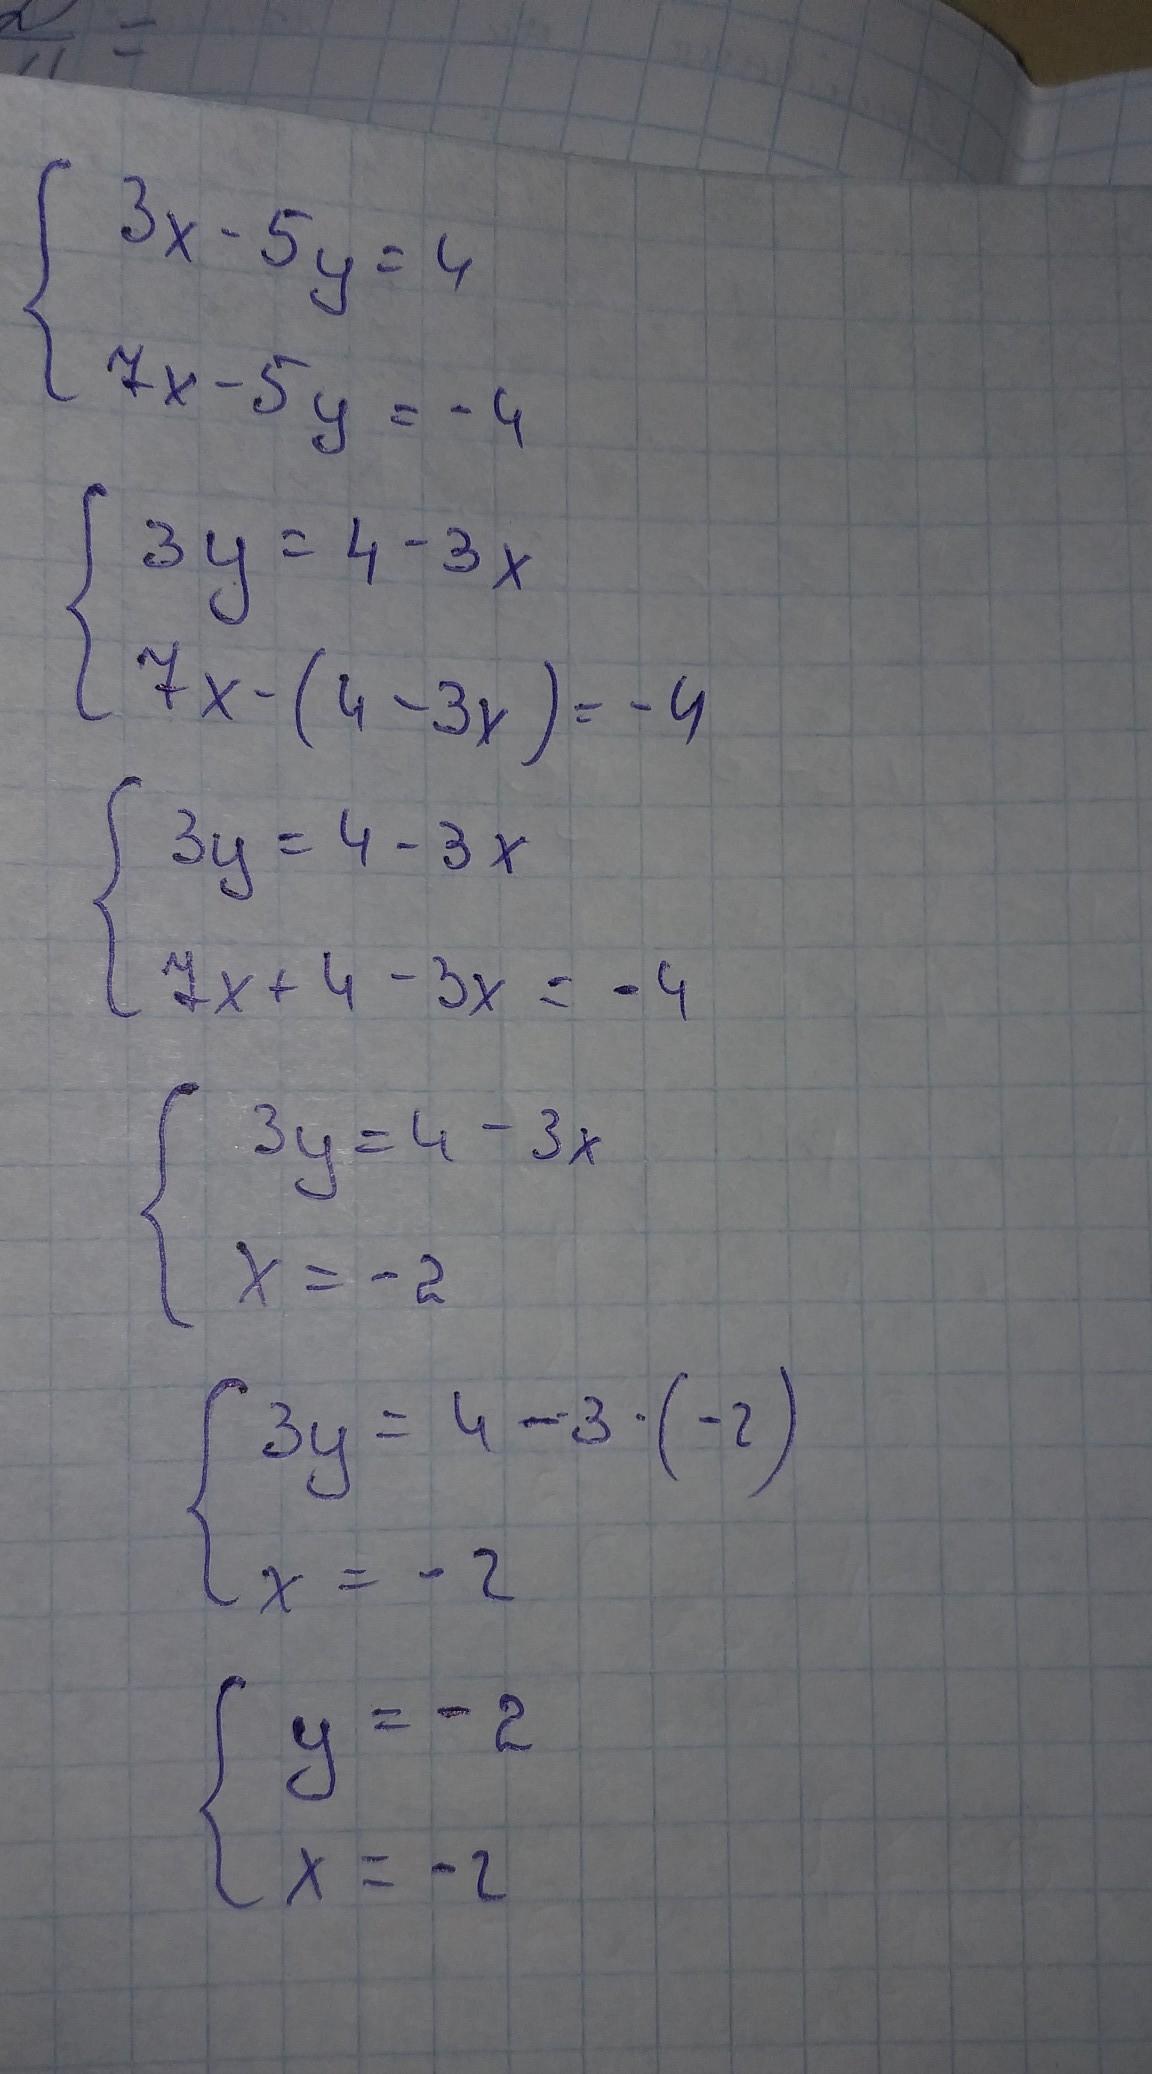 3x - 5y = 4
7x - 5y = - 4
3y = 4 - 3x
7x - (4 - 3x) = - 4
3y = 4 - 3x
7x + 4 - 3x = - 4
3y = 4 - 3x
x = - 2
3y = 4 - 3 · (-2)
x = - 2
y = - 2
x = - 2